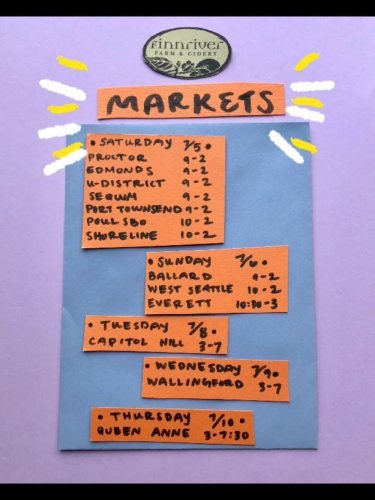 Finnriver
FARM & CIDERY
MARKETS
• SATURDAY 7/5 •
PROCTOR 9-2
EDMONDS 9-2
U-DISTRICT 9-2
SEQUIM 9-2
PORT TOWNSEND 9-2
POULSBO 10-2
SHORELINE 10-2
• SUNDAY 7/6 •
BALLARD 9-2
WEST SEATTLE 10-2
EVERETT 10:30-3
• TUESDAY 7/8 •
CAPITOL HILL 3-7
• WEDNESDAY 7/9 •
WALLINGFORD 3-7
• THURSDAY 7/10 •
QUEEN ANNE 3-7:30